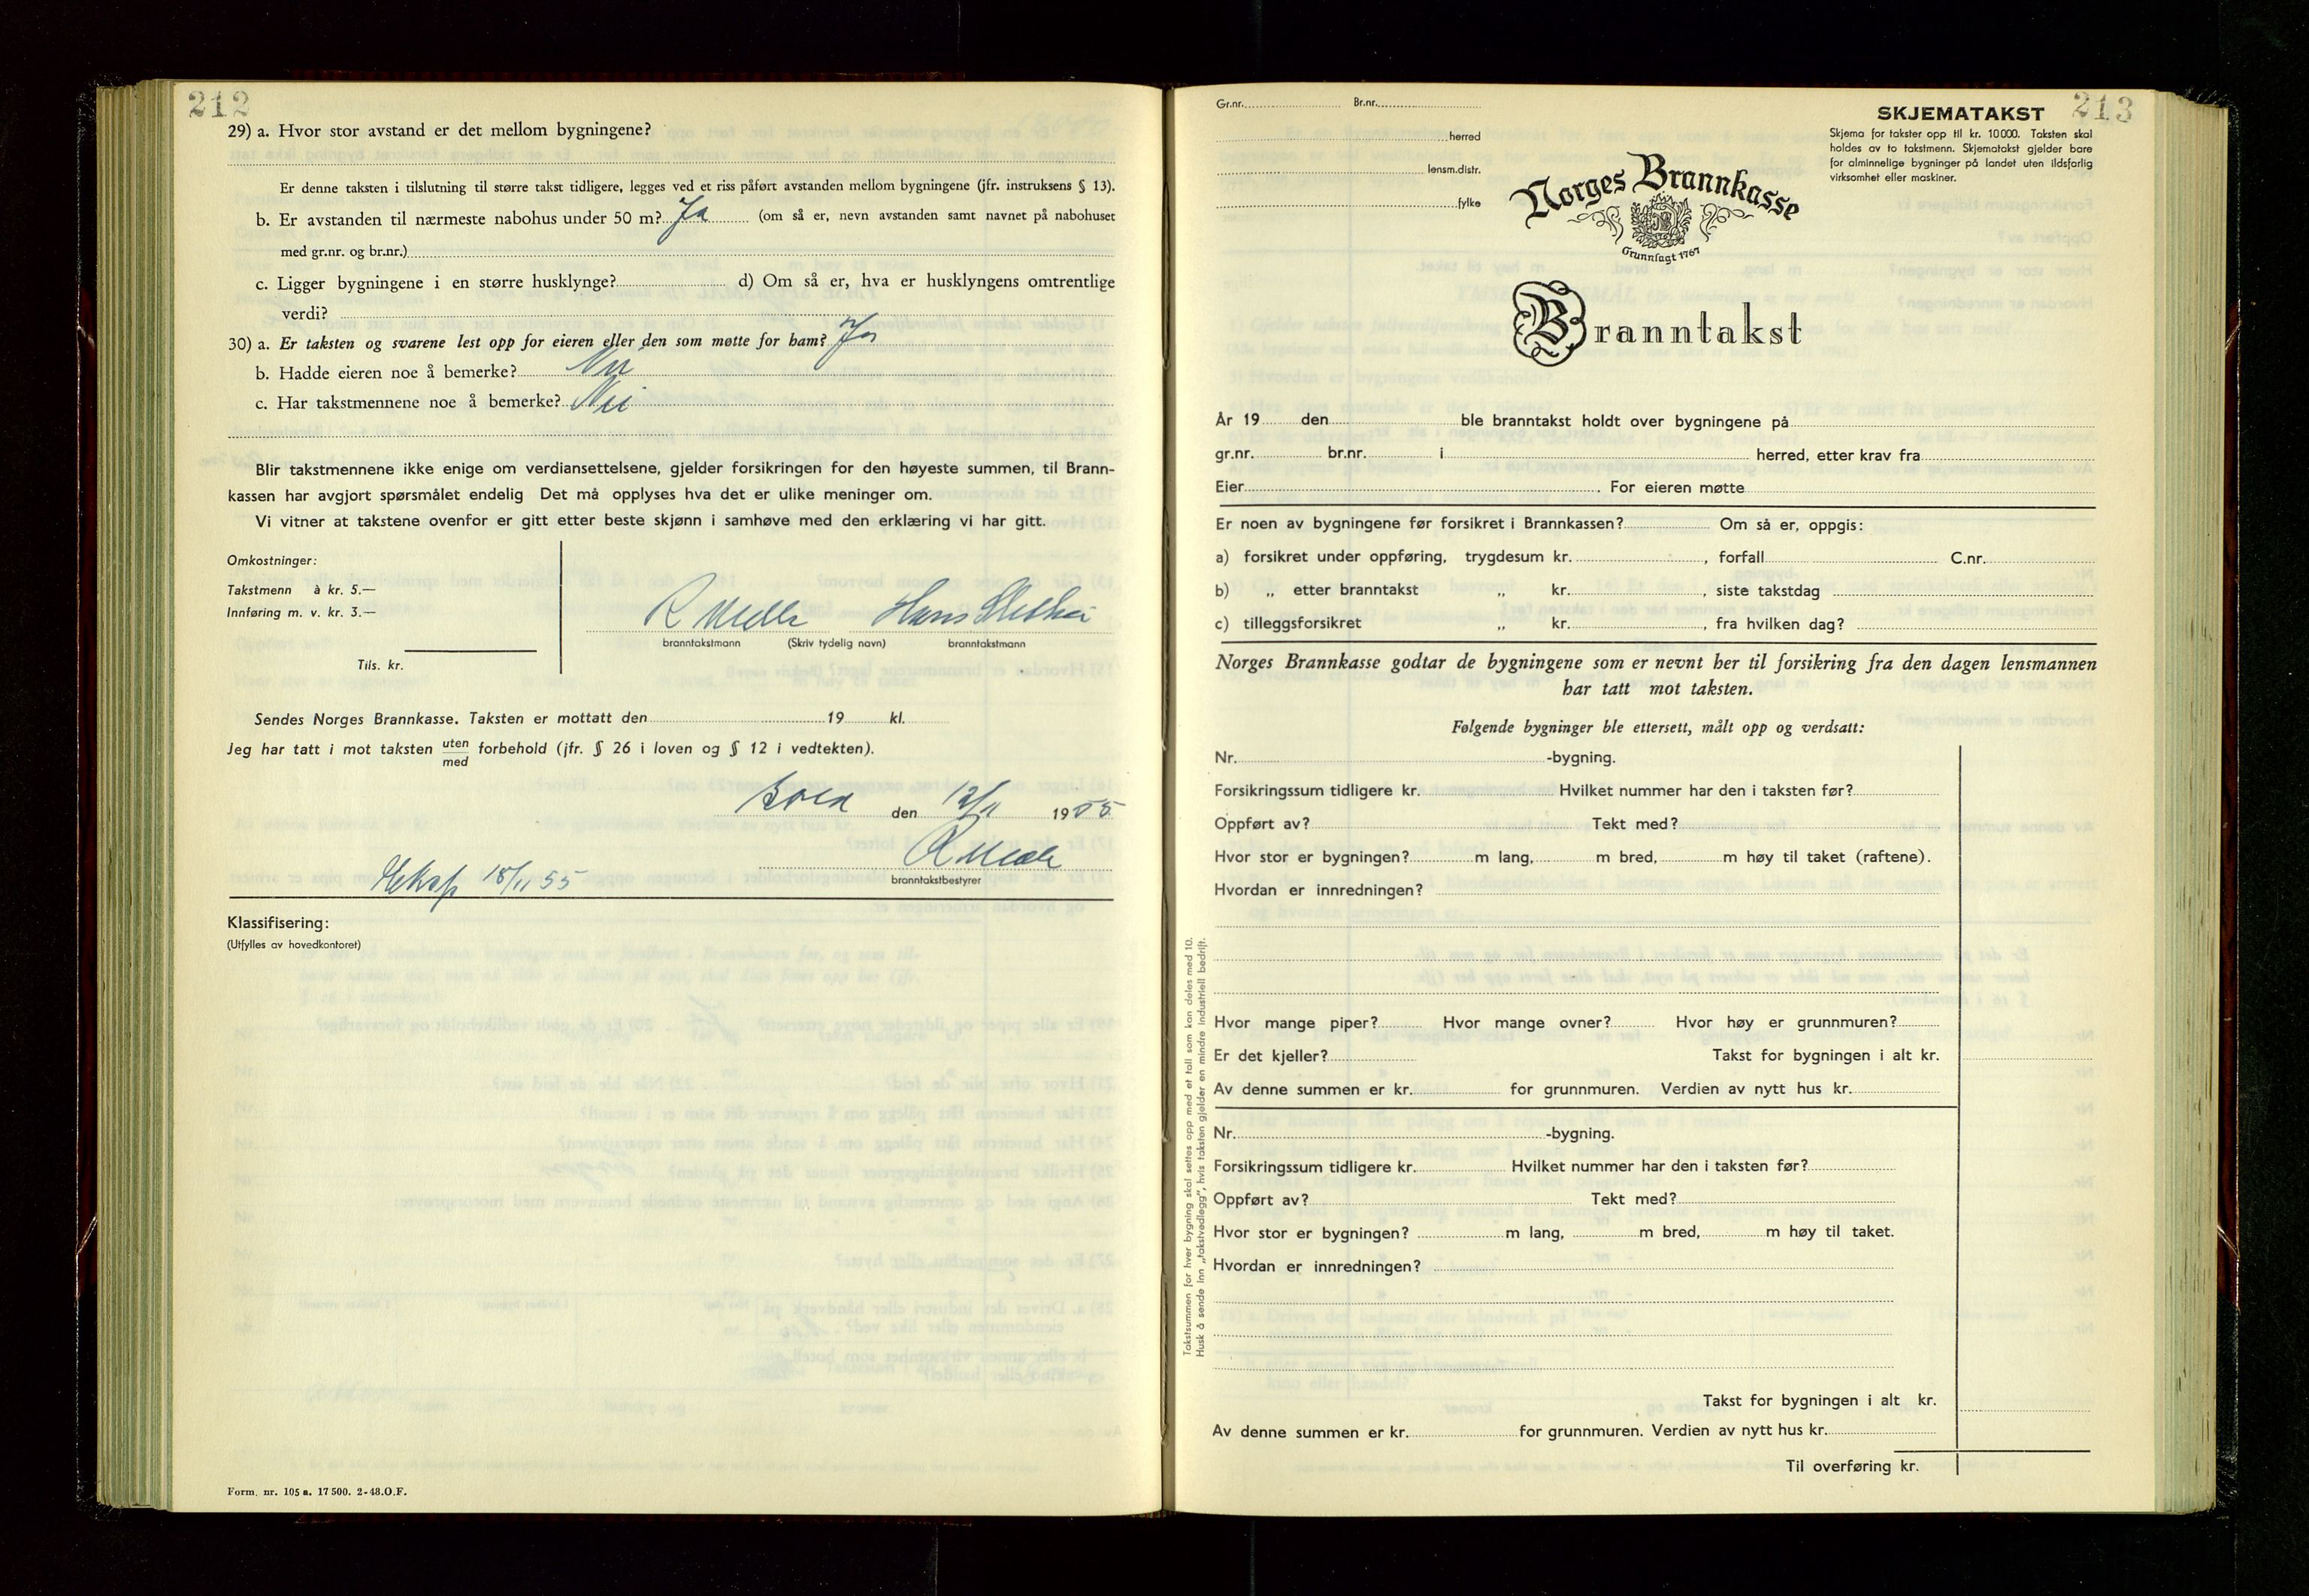 212
29) a. Hvor stor avstand er det mellom bygningene?
Er denne taksten i tilslutning til større takst tidligere, legges ved et riss påført avstanden mellom bygningene (jfr. instruksens § 13).
b. Er avstanden til nærmeste nabohus under 50 m? Ja (om så er, nevn avstanden samt navnet på nabohuset
med gr.nr. og br.nr.)
c. Ligger bygningene i en større husklynge? d) Om så er, hva er husklyngens omtrentlige
verdi?
30) a. Er taksten og svarene lest opp for eieren eller den som møtte for ham? Ja
b. Hadde eieren noe å bemerke? Nei
c. Har takstmennene noe å bemerke? Nei
Blir takstmennene ikke enige om verdiansettelsene, gjelder forsikringen for den høyeste summen, til Brann-
kassen har avgjort spørsmålet endelig Det må opplyses hva det er ulike meninger om.
Vi vitner at takstene ovenfor er gitt etter beste skjønn i samhøve med den erklæring vi har gitt.
Omkostninger:
Takstmenn à kr. 5.—
Innføring m. v. kr. 3.—
Tils. kr.
R Hans
branntakstmann (Skriv tydelig navn) branntakstmann
Sendes Norges Brannkasse. Taksten er mottatt den 19 kl.
Jeg har tatt i mot taksten uten forbehold (jfr. § 26 i loven og § 12 i vedtekten).
med
den 12/11 1955
R
branntakstbestyrer
18/11 55
Klassifisering:
(Utfylles av hovedkontoret)
Form. nr. 105 a. 17 500. 2-48.O.F.
213
Gr.nr. Br.nr.
herred
lensm.distr.
fylke
SKJEMATAKST
Skjema for takster opp til kr. 10 000. Taksten skal
holdes av to takstmenn. Skjematakst gjelder bare
for alminnelige bygninger på landet uten ildsfarlig
virksomhet eller maskiner.
Norges Brannkasse
Grunnlagt 1767
Branntakst
År 19 den ble branntakst holdt over bygningene på
gr.nr. br.nr. i herred, etter krav fra
Eier. For eieren møtte
Er noen av bygningene før forsikret i Brannkassen? Om så er, oppgis:
a) forsikret under oppføring, trygdesum kr. , forfall C.nr.
b) „ etter branntakst „ kr. , siste takstdag
c) tilleggsforsikret „ kr. , fra hvilken dag?
Norges Brannkasse godtar de bygningene som er nevnt her til forsikring fra den dagen lensmannen
har tatt mot taksten.
Følgende bygninger ble ettersett, målt opp og verdsatt:
Nr. -bygning.
Forsikringssum tidligere kr. Hvilket nummer har den i taksten før?
Oppført av? Tekt med?
Hvor stor er bygningen? m lang, m bred, m høy til taket (raftene).
Hvordan er innredningen?
Hvor mange piper? Hvor mange ovner? Hvor høy er grunnmuren?
Er det kjeller? Takst for bygningen i alt kr.
Av denne summen er kr. for grunnmuren. Verdien av nytt hus kr.
Nr. -bygning.
Forsikringssum tidligere kr. Hvilket nummer har den i taksten før?
Oppført av? Tekt med?
Hvor stor er bygningen? m lang, m bred, m høy til taket.
Hvordan er innredningen?
Takst for bygningen i alt kr.
Av denne summen er kr. for grunnmuren. Verdien av nytt hus kr.
Til overføring kr.
Takstsummen for hver bygning skal settes opp med et tall som kan deles med 10.
Husk å sende inn „takstvedlegg", hvis taksten gjelder en mindre industriell bedrift.